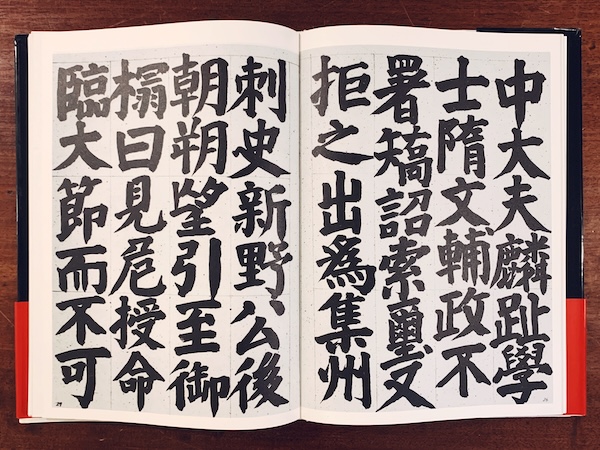 中大夫麟趾學
士隋文輔政不
署矯詔索璽又
拒之出爲集州
刺史新野公後
朝朔望引至御
榻曰見危授命
臨大節而不可